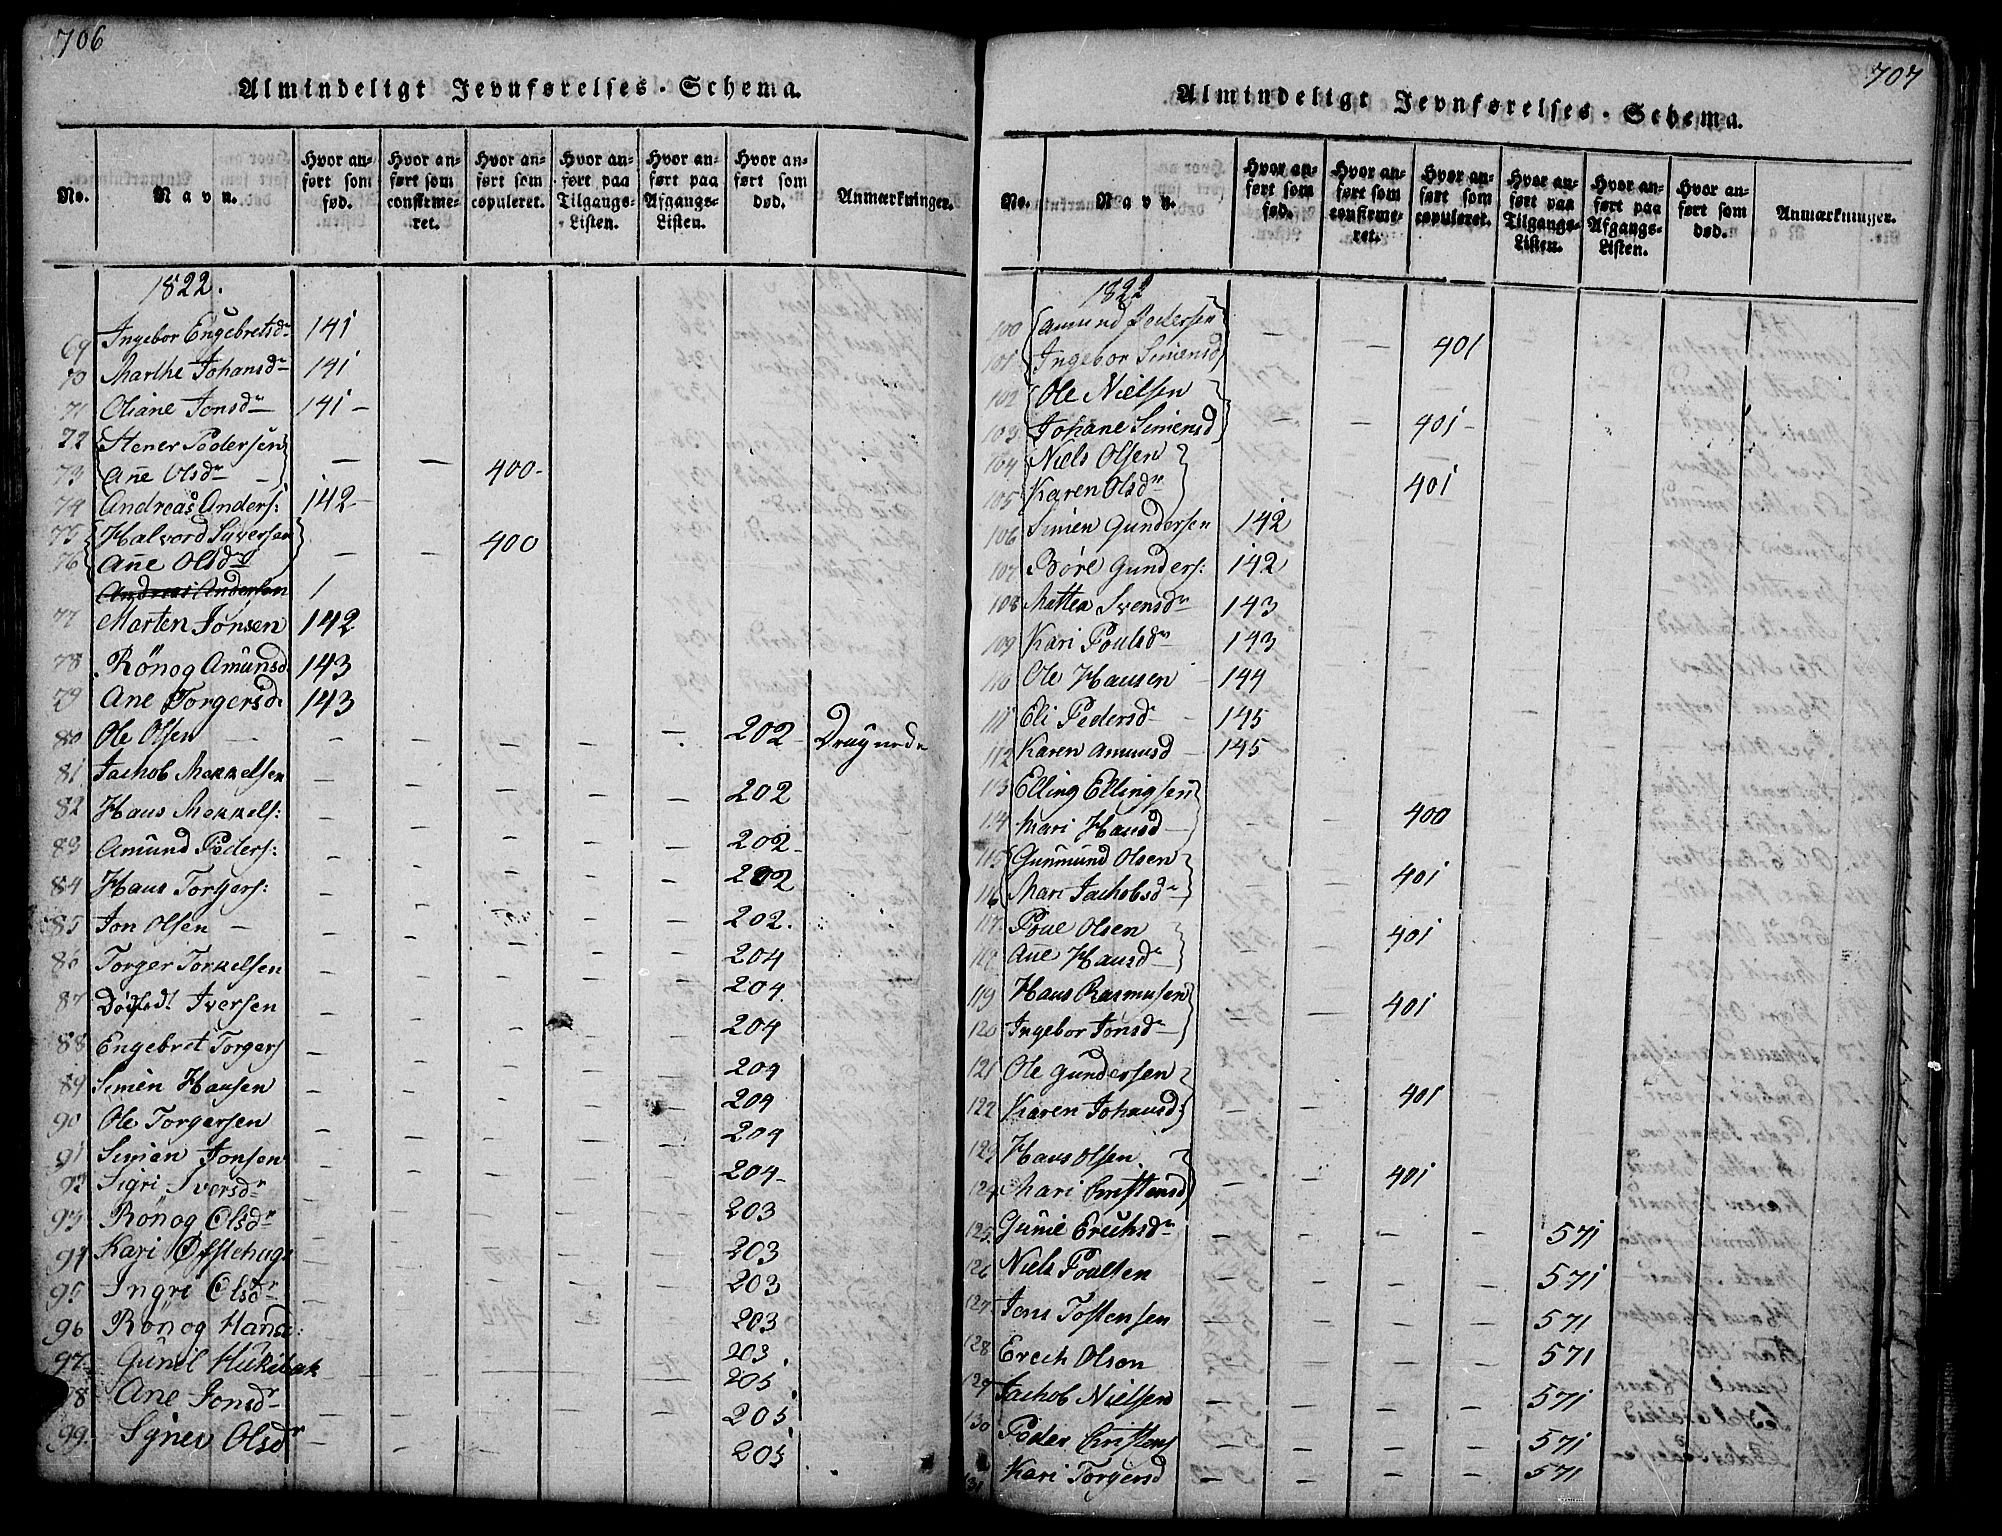 706
Almindeligt Jevnførelses-Schema.
No. Navn. Hvor anført som fød. Hvor anført som confirmeret. Hvor anført som copuleret. Hvor anført paa Tilgangs-Listen. Hvor anført paa Afgangs-Listen. Hvor anført som død. Anmærkninger.
1822.
69 Ingebor Engebretsdr 141
70 Marthe Johansdr 141
71 Oliane Jonsdr 141 -
72 Stener Pedersen
73 Añe Olsdr - — — 400-
74 Andreas Anders: 142-
75 Halvord Siversen
76 Añe Olsdr — — 400
Andreas Andersen 1
77 Marten Jonsen 142
78 Rönog Amunsd 143
79 Ane Torgersd 143
80 Ole Olsen — — — — — — 202-
81 Jachob Mekkelsen — — — — — 202
82 Hans Mekkels: — — — — — 202-
83 Amund Peders: — — — — — 202
84 Hans Torgers: — — — — — 202.
85 Jon Olsen — — — — — — 204
86 Torger Torkelsen — — — — — 204.
87 Iversen — — — — — 204
88 Engebret Torgers — — — — — 204
89 Simen Hansen — — — — — 204
90 Ole Torgersen — — — — — 204
91 Simen Jonsen — — — — — 204-
92 Sigri Iversdr — — — — — 203
93 Rönog Olsdr — — — — — 203
94 Kari Øfstehage — — — — — 203
95 Ingri Olsdr — — — — — 203
96 Rönog Hansd: — — — — — 203.
97 Gunil — — — — — 205
98 Ane Jonsdr — — — — — 205
99. Signev Olsdr — — — — — 205
707
Almindeligt Jevnførelses-Schema.
No. Navn. Hvor anført som fød. Hvor anført som confirmeret. Hvor anført som copuleret. Hvor anført paa Tilgangs-Listen. Hvor anført paa Afgangs-Listen. Hvor anført som død. Anmærkninger.
1822
100 Amund Pedersen
101 Ingebor Simensd — — 401
102 Ole Nielsen
103 Johane Simensd — — 401-
104 Niels Olsen
105 Karen Olsdr 401
106 Simen Gundersen 142
107 Böre Gunders: 142
108 Mattea Svensdr 143
109 Kari Poulsdr 143
110 Ole Hansen 144
111 Eli Pedersd - 145
112 Karen Amunsd 145
113 Elling Ellingsen
114 Mari Hansd — — — 400
115 Gunmund Olsen
116 Mari Jachobsdr — — 401
117. Poul Olsen
118 Añe Hansdr — — 401
119 Hans Rasmusen
120 Ingebor Jonsdr — — 401
121 Ole Gundersen
122 Karen Johansd: — — 401
123 Hans Olsen
124 Mari Cristensd — — 401
125. Gunil Erichsdr — — — — 571
126 Niels Poulsen — — — — 571
127 Jens Tostensen — — — — 571
128 Erich Olson — — — — 571
129 Jachob Nielsen — — — — 571
130 Peder Cristens — — — — 571
131 Kari Torgersd — — — — 571